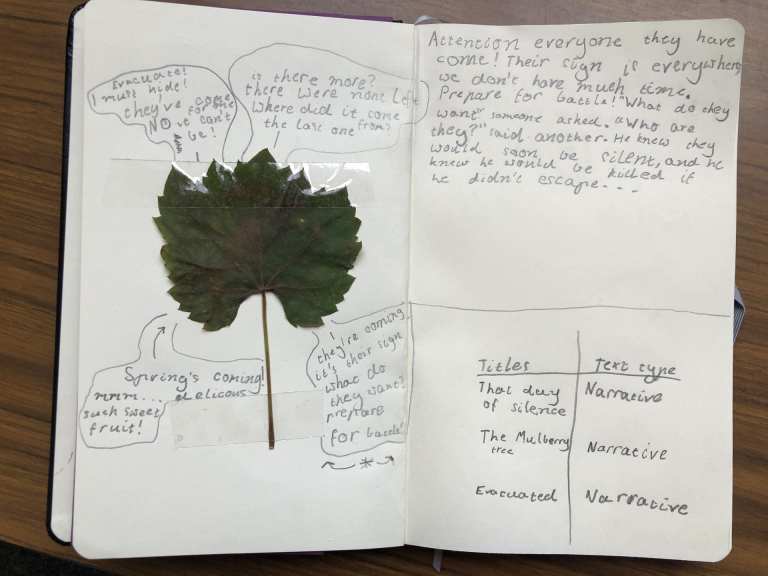 Evacuate!
I must hide!
they've come
for me
NO it can't
be!
is there more?
there were none left
where did it come
the last one from?
Spring's coming!
mmm... delicous
such sweet
fruit!
they're coming
it's their sign
what do
they want?
prepare
for battle!
Attention everyone they have
come! Their sign is everywhere,
we don't have much time.
Prepare for battle! "What do they
want" someone asked. "Who are
they?" said another. He knew they
would soon be silent, and he
knew he would be killed if
he didn't escape...
Titles Text type
That day Narrative
of silence
The Mulberry Narrative
tree
Evacuated Narrative